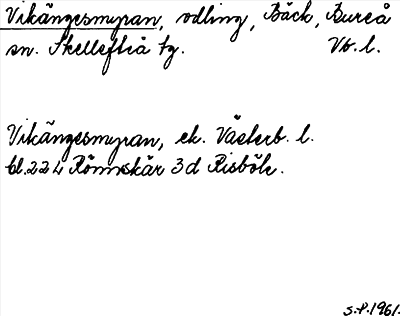 Vikängesmyran, odling, Bäck, Bureå
sn. Skellefteå tg. Vb. l.
Vikängesmyran, ek. Västerb. l.
bl. 22 L Rönnskär 3 d Risböle.
S.P. 1961.